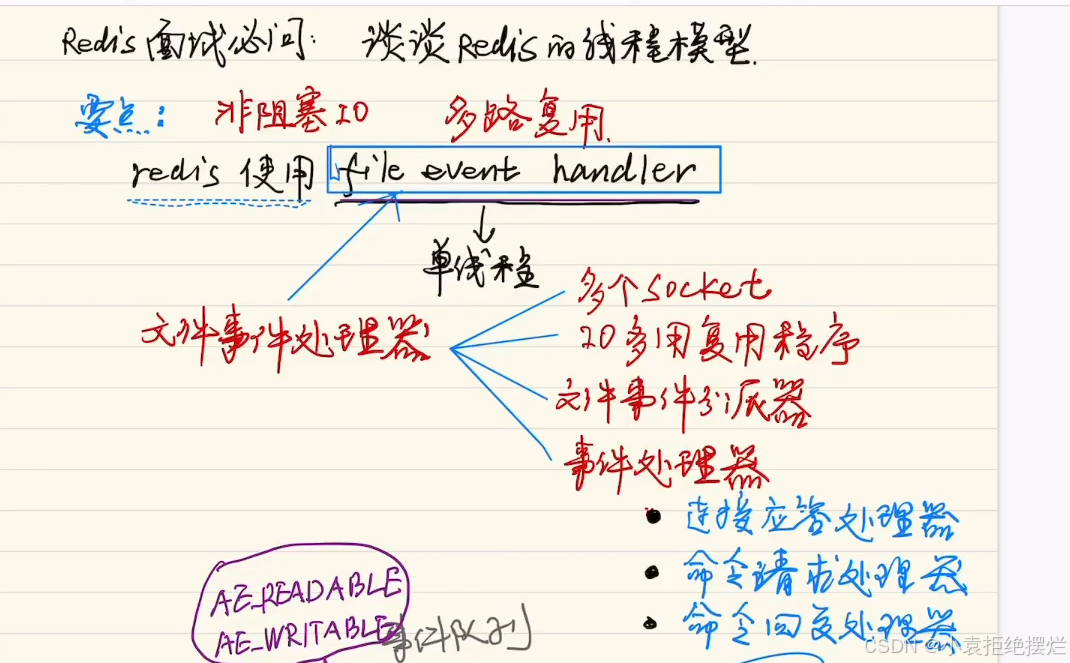 Redis面试必问: 谈谈Redis的线程模型.
要点: 非阻塞IO 多路复用.
redis 使用 file event handler
单线程
文件事件处理器
多个socket
IO多用复用程序
文件事件分派器
事件处理器
连接应答处理器
命令请求处理器
命令回复处理器
AE_READABLE
AE_WRITABLE
事件队列
CSDN @小袁拒绝摆烂